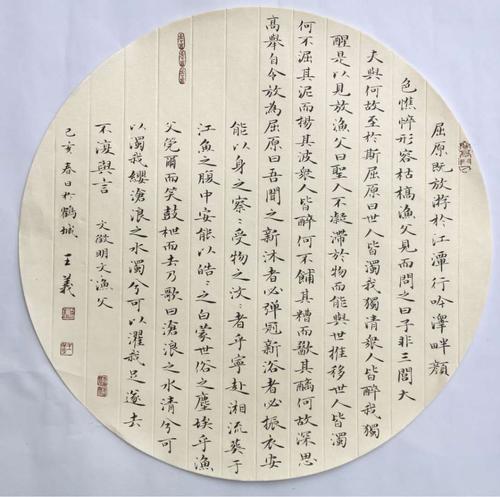 屈原既放游於江潭行吟澤畔顏
色憔悴形容枯槁漁父見而問之曰子非三閭大
夫與何故至於斯屈原曰世人皆濁我獨清衆人皆醉我獨
醒是以見放漁父曰聖人不凝滯於物而能與世推移世人皆濁
何不淈其泥而揚其波衆人皆醉何不餔其糟而歠其醨何故深思
高舉自令放為屈原曰吾聞之新沐者必彈冠新浴者必振衣安
能以身之察〻受物之汶〻者乎寧赴湘流葬于
江魚之腹中安能以皓〻之白蒙世俗之塵埃乎漁
父莞爾而笑鼓枻而去乃歌曰滄浪之水清兮可
以濁我纓滄浪之水濁兮可以濯我足遂去
不復與言 文徵明文漁父
己亥春日於鶴城 王義